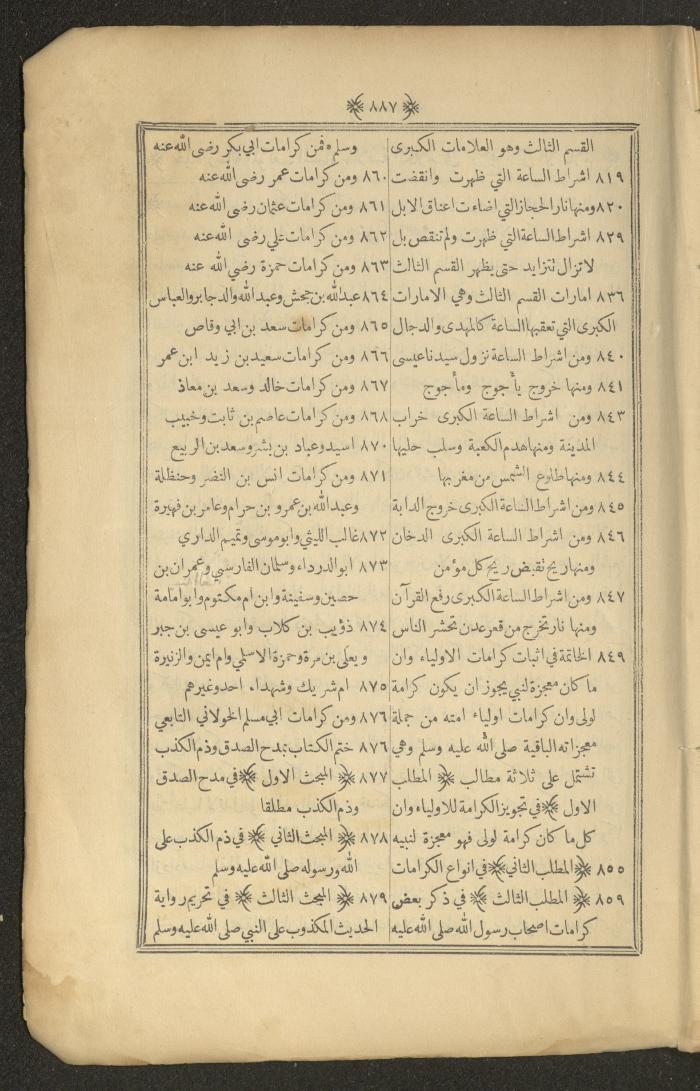 ﴿ ٨٨٧ ﴾
القسم الثالث وهو العلامات الكبرى
٨١٩ اشراط الساعة التي ظهرت وانقضت
٨٢٠ ومنها نار الحجاز التي اضاءت اعناق الابل
٨٢٩ اشراط الساعة التي ظهرت ولم تنقص بل
لا تزال تتزايد حتى يظهر القسم الثالث
٨٣٦ امارات القسم الثالث وهي الامارات
الكبرى التي تعقبها الساعة كالمهدى والدجال
٨٤٠ ومن اشراط الساعة نزول سيدنا عيسى
٨٤١ ومنها خروج يأجوج ومأجوج
٨٤٣ ومن اشراط الساعة الكبرى خراب
المدينة ومنها هدم الكعبة وسلب حليها
٨٤٤ ومنها طلوع الشمس من مغربها
٨٤٥ ومن اشراط الساعة الكبرى خروج الدابة
٨٤٦ ومن اشراط الساعة الكبرى الدخان
ومنها ريح تقبض ريح كل مؤمن
٨٤٧ ومن اشراط الساعة الكبرى رفع القرآن
ومنها نار تخرج من قعر عدن تحشر الناس
٨٤٩ الخاتمة في اثبات كرامات الاولياء وان
ما كان معجزة لنبي يجوز ان يكون كرامة
لولى وان كرامات اولياء امته من جملة
معجزاته الباقية صلى الله عليه وسلم وهي
تشتمل على ثلاثة مطالب ﴿ المطلب
الاول ﴾ في تجويز الكرامة للاولياء وان
كل ما كان كرامة لولى فهو معجزة لنبيه
٨٥٥ ﴿ المطلب الثاني ﴾ في انواع الكرامات
٨٥٩ ﴿ المطلب الثالث ﴾ في ذكر بعض
كرامات اصحاب رسول الله صلى الله عليه
وسلم ه فمن كرامات ابي بكر رضى الله عنه
٨٦٠ ومن كرامات عمر رضى الله عنه
٨٦١ ومن كرامات عثمان رضى الله عنه
٨٦٢ ومن كرامات علي رضى الله عنه
٨٦٣ ومن كرامات حمزة رضي الله عنه
٨٦٤ عبد الله بن جحش وعبد الله والد جابر والعباس
٨٦٥ ومن كرامات سعد بن ابي وقاص
٨٦٦ ومن كرامات سعيد بن زيد ابن عمر
٨٦٧ ومن كرامات خالد وسعد بن معاذ
٨٦٨ ومن كرامات عاصم بن ثابت وخبيب
٨٧٠ اسيد وعباد بن بشر وسعد بن الربيع
٨٧١ ومن كرامات انس بن النضر وحنظلة
وعبد الله بن عمرو بن حرام وعامر بن فهيرة
٨٧٢ غالب الليثي وابو موسى وتميم الداري
٨٧٣ ابو الدرداء وسلمان الفارسي وعمران بن
حصين وسفينة وابن ام مكتوم وابو امامة
٨٧٤ ذؤيب بن كلاب وابو عيسى بن جبر
ويعلى بن مرة وحمزة الاسلمي وام ايمن والزنيرة
٨٧٥ ام شريك وشهداء احد وغيرهم
٨٧٦ ومن كرامات ابي مسلم الخولاني التابعي
٨٧٦ ختم الكتاب بمدح الصدق وذم الكذب
٨٧٧ ﴿ المبحث الاول ﴾ في مدح الصدق
وذم الكذب مطلقا
٨٧٨ ﴿ المبحث الثاني ﴾ في ذم الكذب على
الله ورسوله صلى الله عليه وسلم
٨٧٩ ﴿ المبحث الثالث ﴾ في تحريم رواية
الحديث المكذوب على النبي صلى الله عليه وسلم